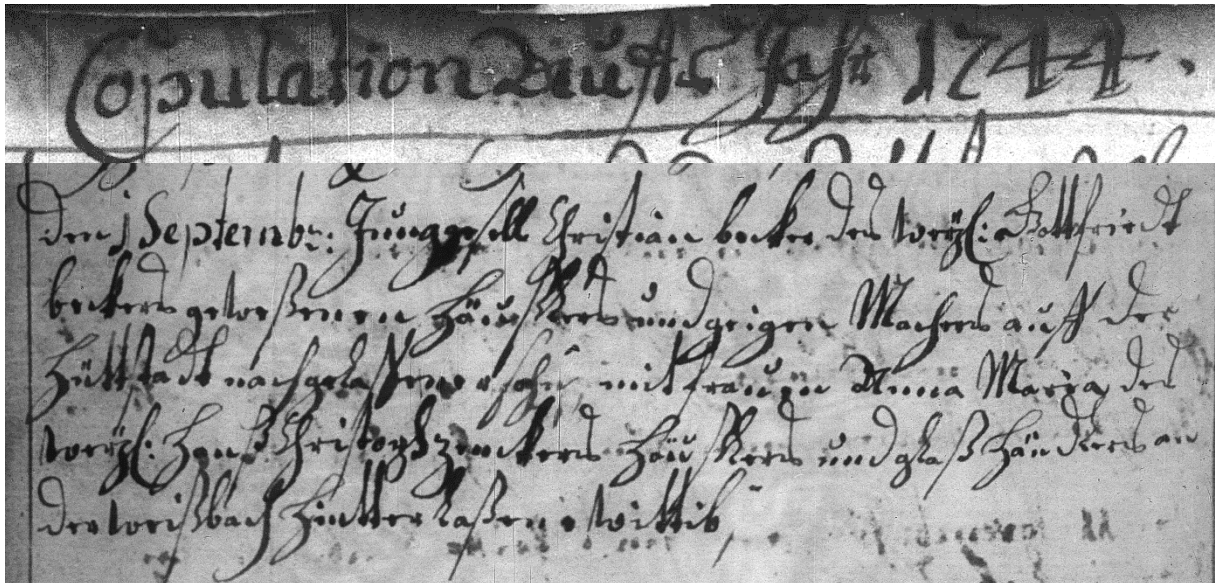 Copulation Auffs Jahr 1744.
den 1 Septembr: Junggesell Christian becker des weyl: Gottfriedt
beckers geweßenen Häußlers und geigen Machers auff der
Hüttstadt nachgelaßener sohn mit frauen Anna Maria des
weyl: Hanß Christoph Zenckers Häußlers und glaß Händlers an
der weißbach Hintterlaßene wittib